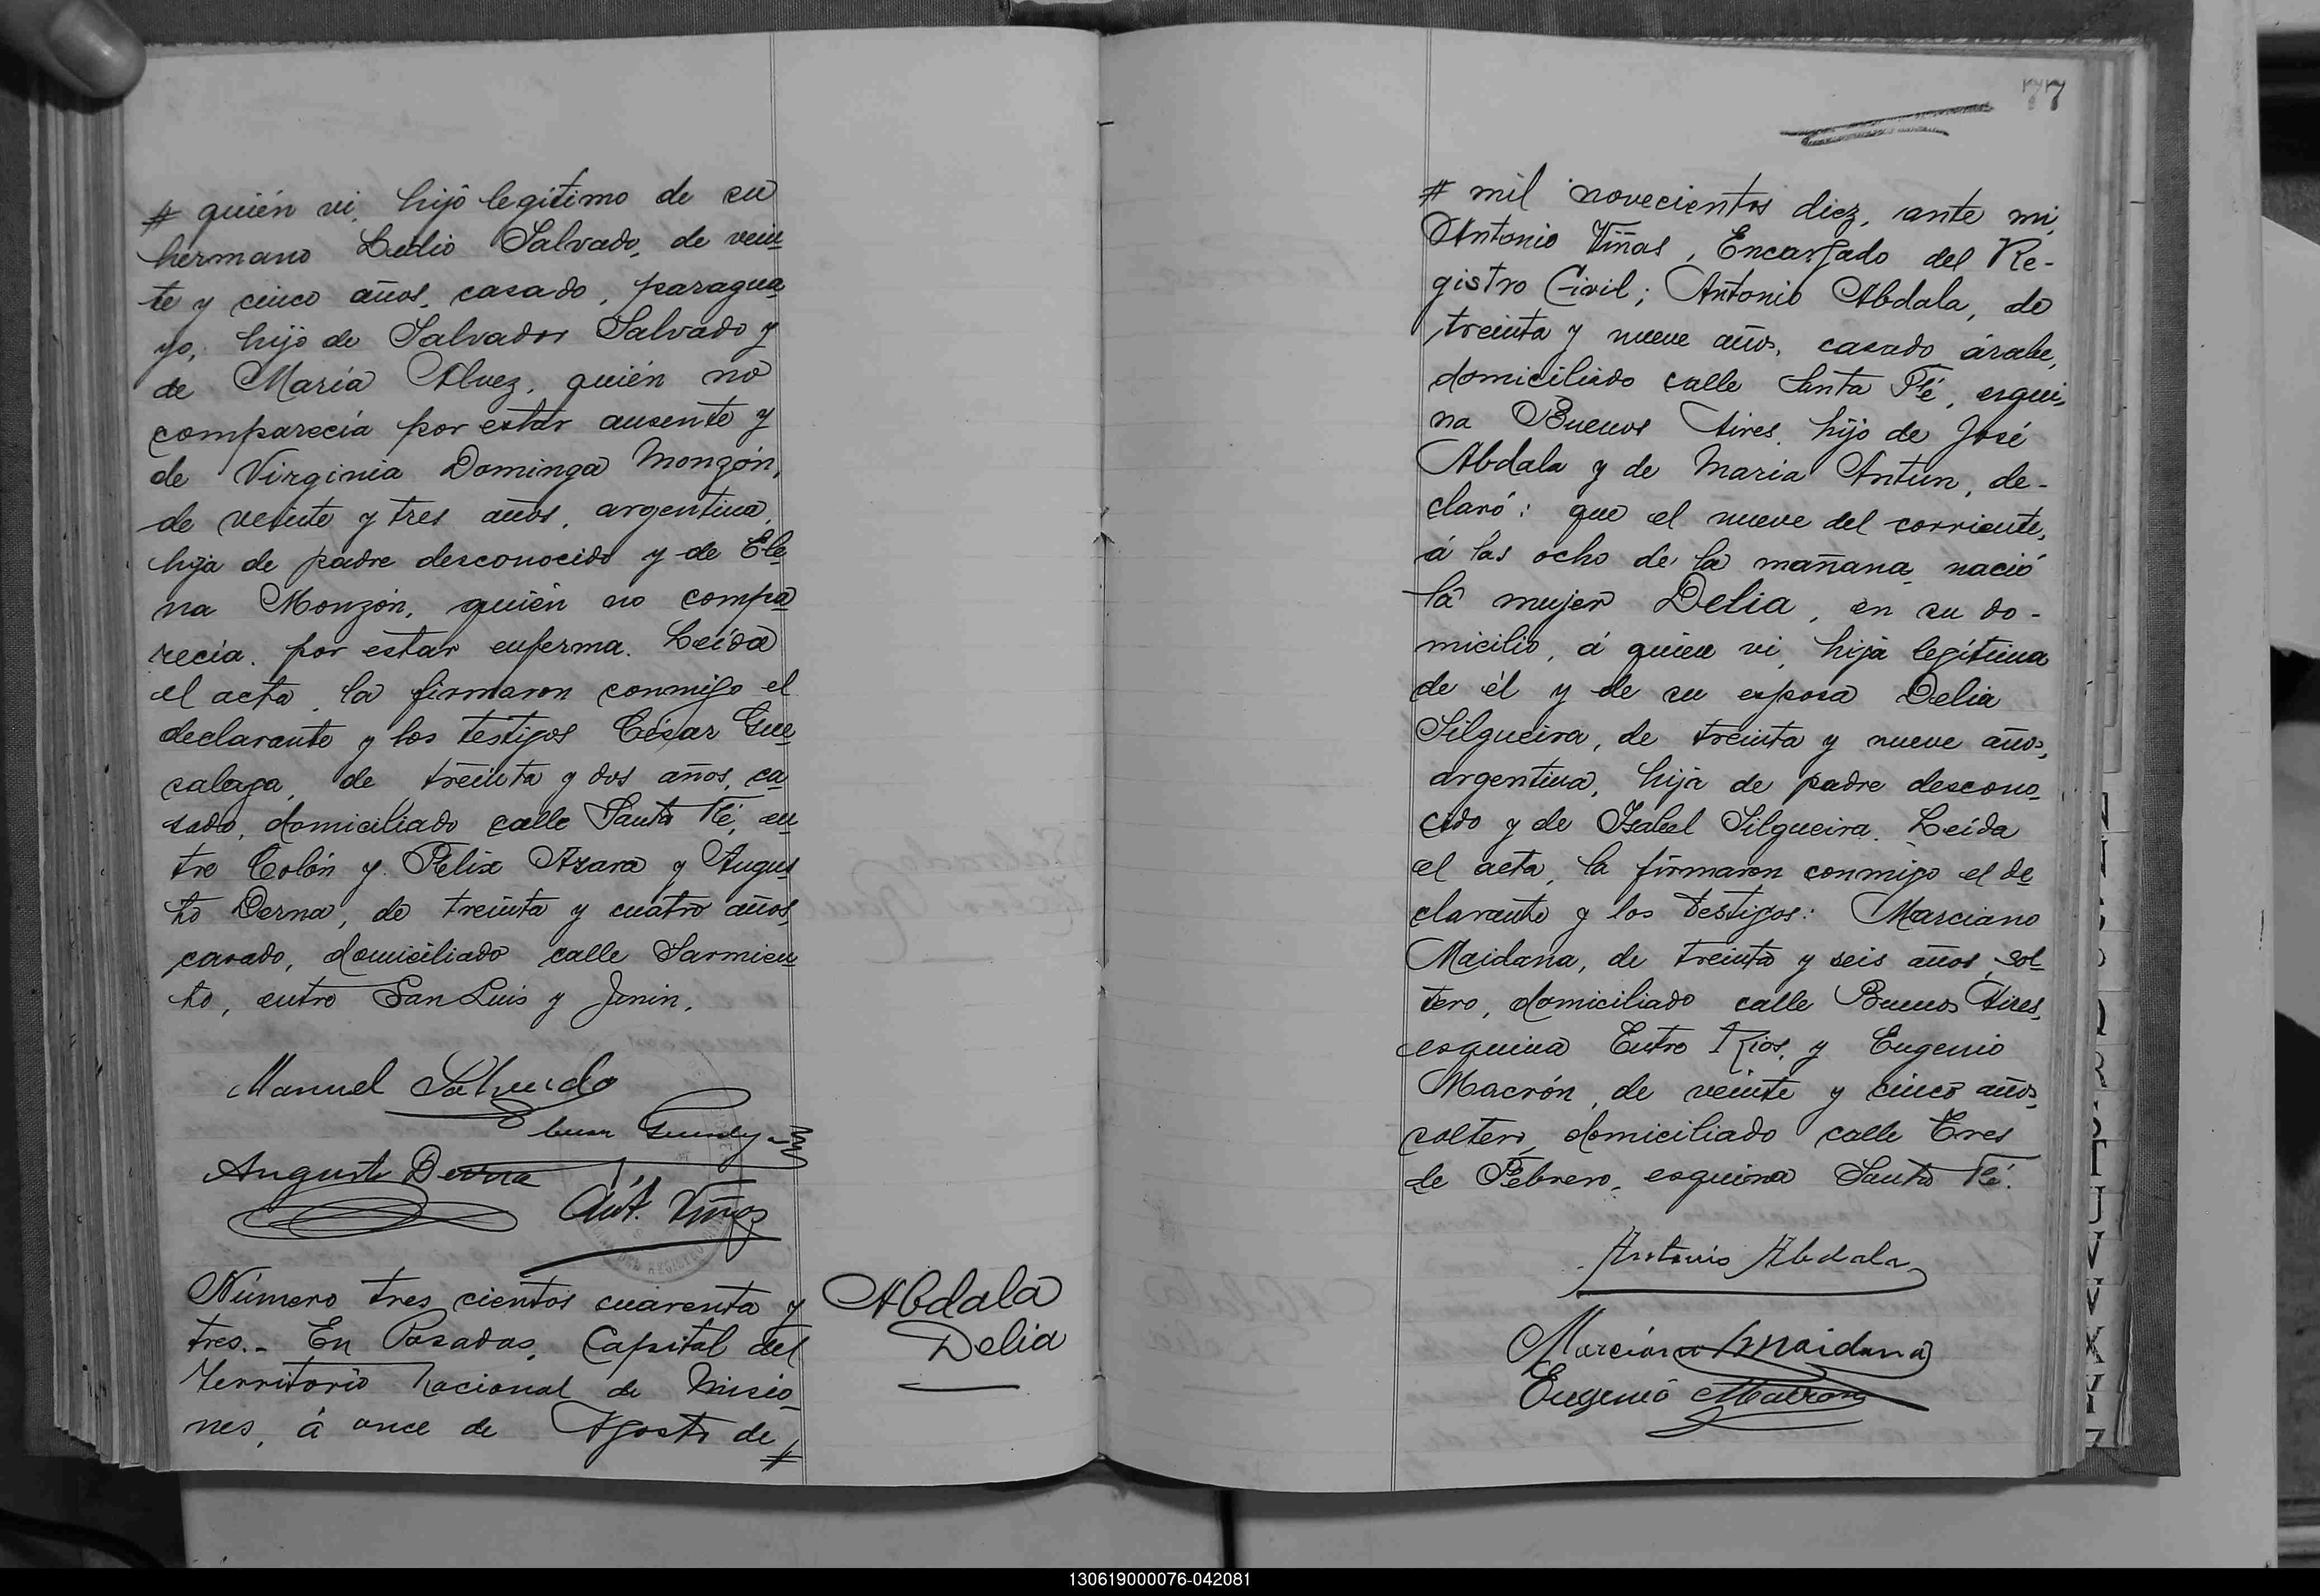 # quién vi, hijo legítimo de su
hermano Lidio Salvado, de vein
te y cinco años, casado, paragua
yo, hijo de Salvador Salvado y
de María Aluez, quién no
comparecía por estar ausente y
de Virginia Dominga Monzón,
de veinte y tres años, argentina,
hija de padre desconocido y de Ele
na Monzón, quién no compa
recía por estar enferma. Leída
el acta, la firmaron conmigo el
declarante y los testigos César Gue
salaga, de treinta y dos años, ca
sado, domiciliado calle Santa Fé, en
tre Colón y Félix Azara y Augus
to Derna, de treinta y cuatro años,
casado, domiciliado calle Sarmien
to, entre San Luis y Junin.
Manuel Salvado
Augusto Derna
Ant. Viñas
Número tres cientos cuarenta y
tres.- En Posadas, Capital del
Territorio Nacional de Misio
nes, á once de Agosto de #
Abdala
Delia
77
# mil novecientos diez, ante mi,
Antonio Viñas, Encargado del Re-
gistro Civil; Antonio Abdala, de
treinta y nueve años, casado, árabe,
domiciliado calle Santa Fé, esqui-
na Buenos Aires, hijo de José
Abdala y de Maria Antun, de-
claró: que el nueve del corriente,
á las ocho de la mañana, nació
la mujer Delia, en su do-
micilio, á quien vi, hija legítima
de él y de su esposa Delia
Silgueira, de treinta y nueve años,
argentina, hija de padre descono-
cido y de Isabel Silgueira. Leída
el acta, la firmaron conmigo el de
clarante y los testigos: Marciano
Maidana, de treinta y seis años, sol
tero, domiciliado calle Buenos Aires,
esquina Entre Rios, y Eugenio
Macrón, de veinte y cinco años,
soltero, domiciliado calle Tres
de Febrero, esquina Santa Fé.
Antonio Abdala
Marciano Maidana
Eugenio Macron
130619000076-042081